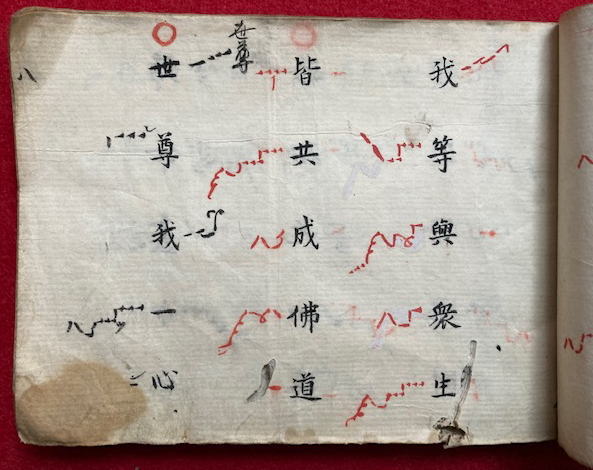 我等與衆生
皆共成佛道
世尊我一心
世尊